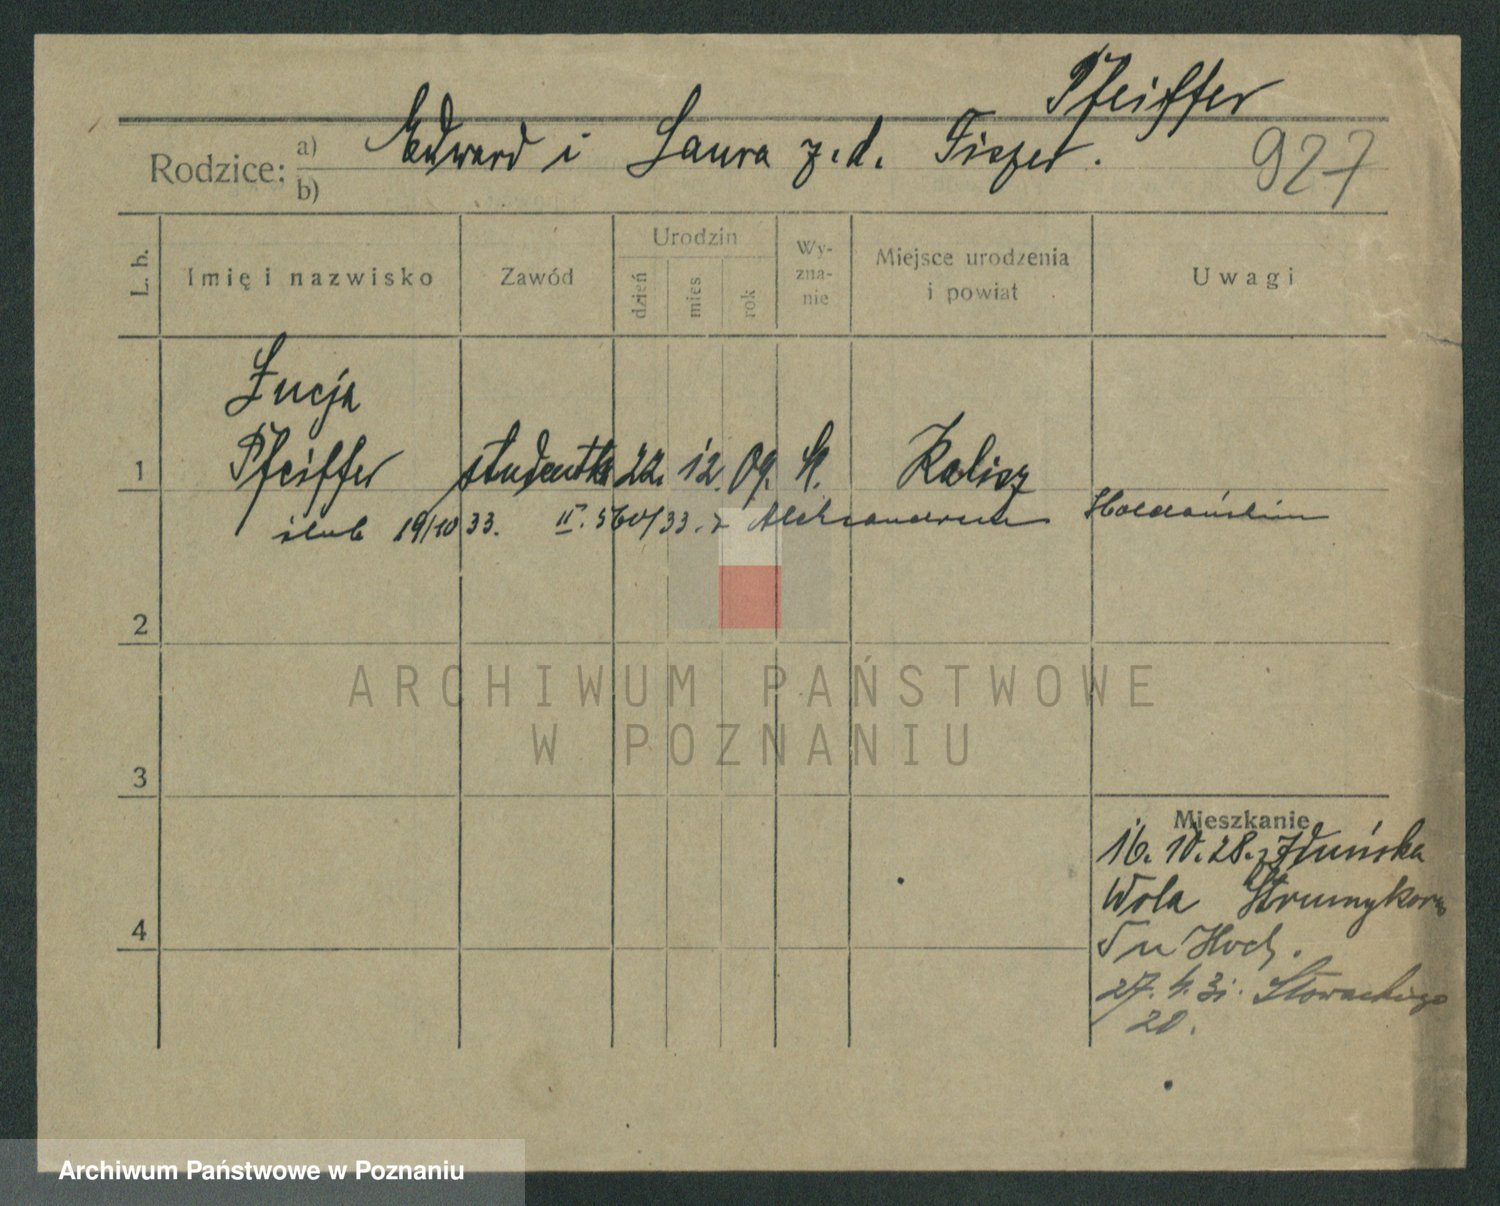 Pfeiffer
Rodzice: a) Edward i Laura z.d. Fiszer.
b)
927
L. b.
Imię i nazwisko
Zawód
Urodzin
dzień
mies
rok
Wy-
zna-
nie
Miejsce urodzenia
i powiat
Uwagi
Łucja
1 Pfeiffer studentka 22. 12. 09. Kalisz
ślub 19/10 33. II. 560/33. z Aleksandrem
2
ARCHIWUM PAŃSTWOWE
W POZNANIU
3
Mieszkanie
16. 10. 28. z Zduńska
Wola
4
27. 4. 31. Słowackiego
20.
Archiwum Państwowe w Poznaniu